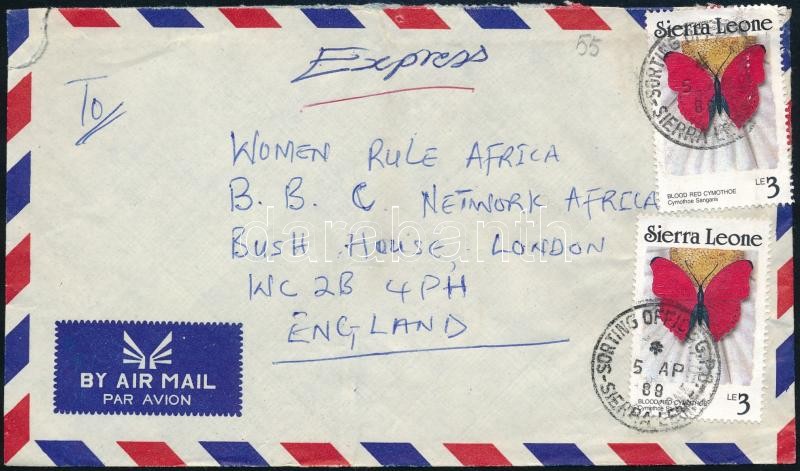 Express
55
To
WOMEN RULE AFRICA
B. B. C NETWORK AFRICA
BUSH HOUSE, LONDON
WC 2B 4PH
ENGLAND
BY AIR MAIL
PAR AVION
Sierra Leone
BLOOD RED CYMOTHOE
Cymothoe Sangaris
LE 3
SORTING OFFICE
5
88
SIERRA LEONE
Sierra Leone
BLOOD RED CYMOTHOE
Cymothoe Sangaris
LE 3
SORTING OFFICE G.P.O.
5 AP
88
SIERRA LEONE
darabanth